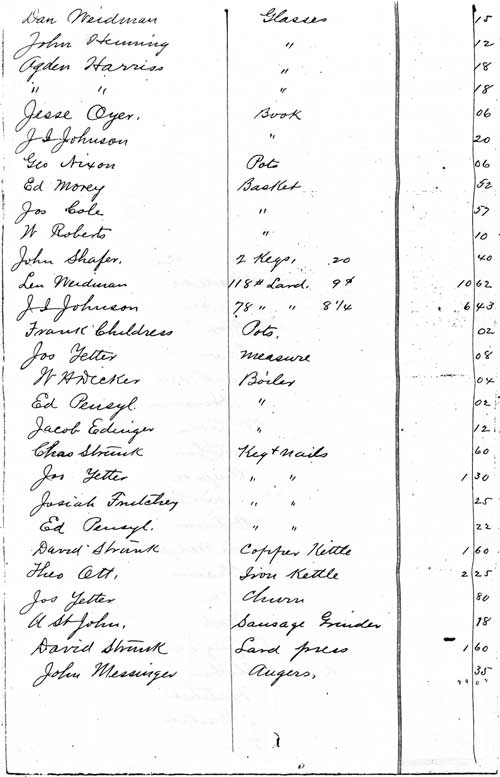 Dan Weidman Glasses 15
John Henning " 12
Agden Harriss " 18
" " " 18
Jesse Oyer. Book 06
J I Johnson " 20
Geo Nixon Pots 06
Ed Morey Basket 52
Jos Cole " 57
W Roberts " 10
John Shafer. 2 Kegs, 20 40
Len Weidman 118# Lard. 9¢ 10 62
J I Johnson 78 " " 8 1/4 6 43
Frank Childress Pots. 02
Jos Yetter Measure 08
W H Decker Boiler 04
Ed Pensyl " 02
Jacob Edinger " 12
Chas Strunk Keg + nails 60
Jos Yetter " " 1 30
Josiah Frutchey " " 25
Ed Pensyl. " " 22
David Strunk Copper Kettle 1 60
Theo Ott. Iron Kettle 2 25
Jos Yetter Churn 80
A St John, Sausage Grinder 18
David Strunk Lard press 1 60
John Messinger Augers, 35